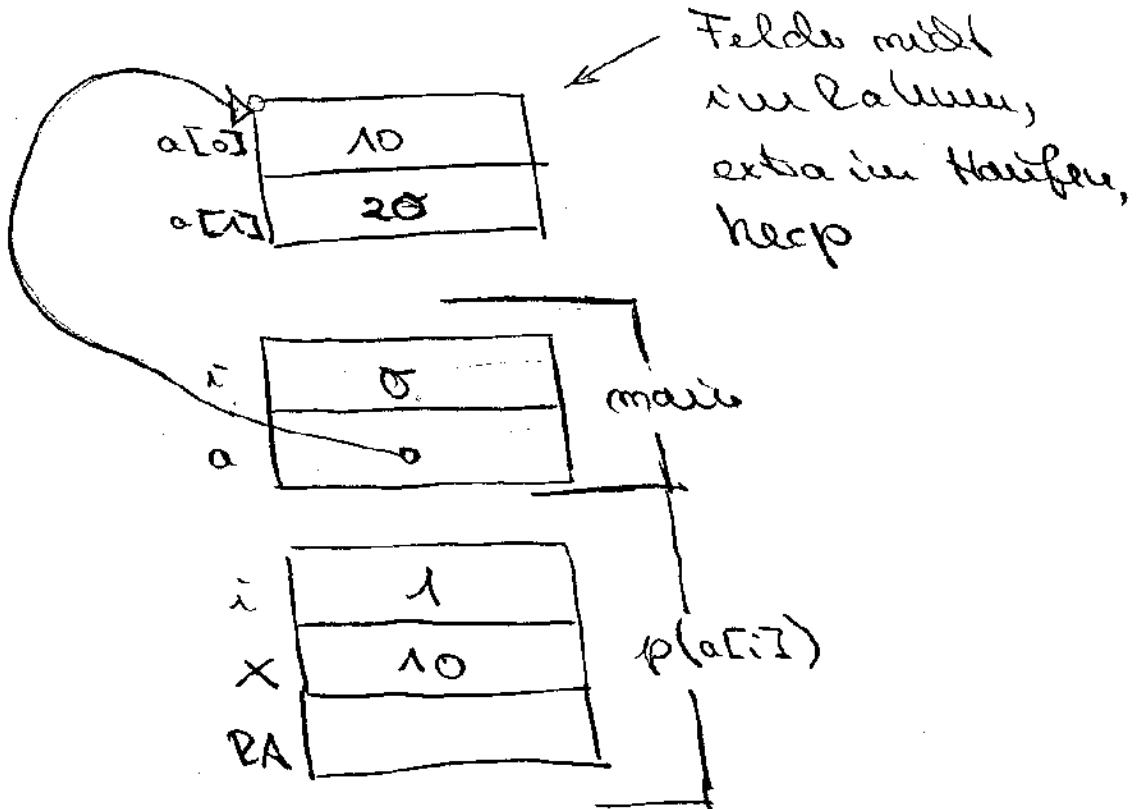 Felder nicht
im Rahmen,
extra im Haufen,
heap
a[0] 10
a[1] 20
i 0
a
main
i 1
x 10
p(a[i])
RA